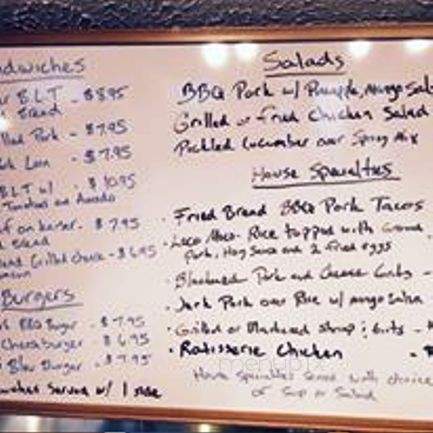 Sandwiches
B.L.T - $8.95
Bread
Pork - $7.95
Loin - $7.95
BLT w/ - $10.95
Tomatoes and Avocado
on kaiser - $7.95
Bread
Grilled cheese - $6.95
Burgers
BBQ Burger - $7.95
Cheeseburger $6.95
Bleu Burger - $7.95
Served w/ 1 side
Salads
BBQ Pork w/ Pineapple, Mango Sal
Grilled or Fried Chicken Salad
Pickled Cucumber over Spring Mix
House Specialties
· Fried Bread BBQ Pork Tacos
· Loco Moco - Rice topped with Ground
Pork, Hog Sauce and 2 fried eggs
· Blackened Pork and Cheese Grits -
· Jerk Pork over Rice w/ mango Salsa
· Grilled or Blackened shrimp & Grits -
· Rotisserie Chicken
House Specialties served with choice
of Soup or Salad